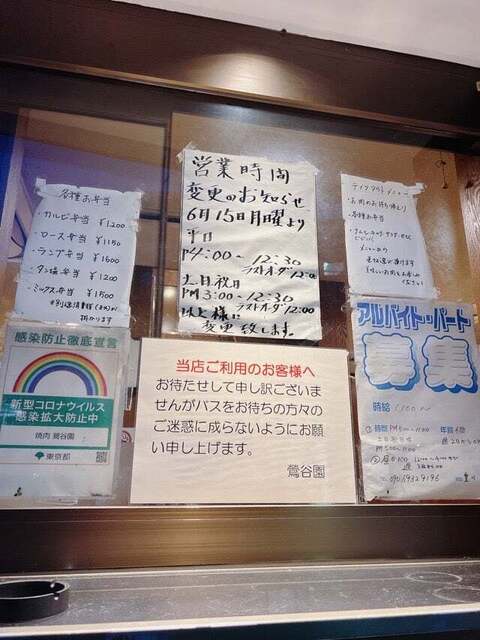 各種お弁当
・カルビ弁当 ¥1200
・ロース弁当 ¥1150
・ランプ弁当 ¥1600
・タン塩弁当 ¥1200
・ミックス弁当 ¥1500
営業時間
変更のお知らせ
6月15日月曜より
平日
PM4:00〜12:30
ラストオーダー12:00
土日祝日
PM3:00〜12:30
ラストオーダー12:00
以上様に
変更致します
テイクアウトメニュー
・各種お弁当
感染防止徹底宣言
新型コロナウイルス
感染拡大防止中
焼肉 鶯谷園
東京都
当店ご利用のお客様へ
お待たせして申し訳ございま
せんがバスをお待ちの方々の
ご迷惑に成らないようにお願
い申し上げます。
鶯谷園
アルバイト・パート
募集
時給